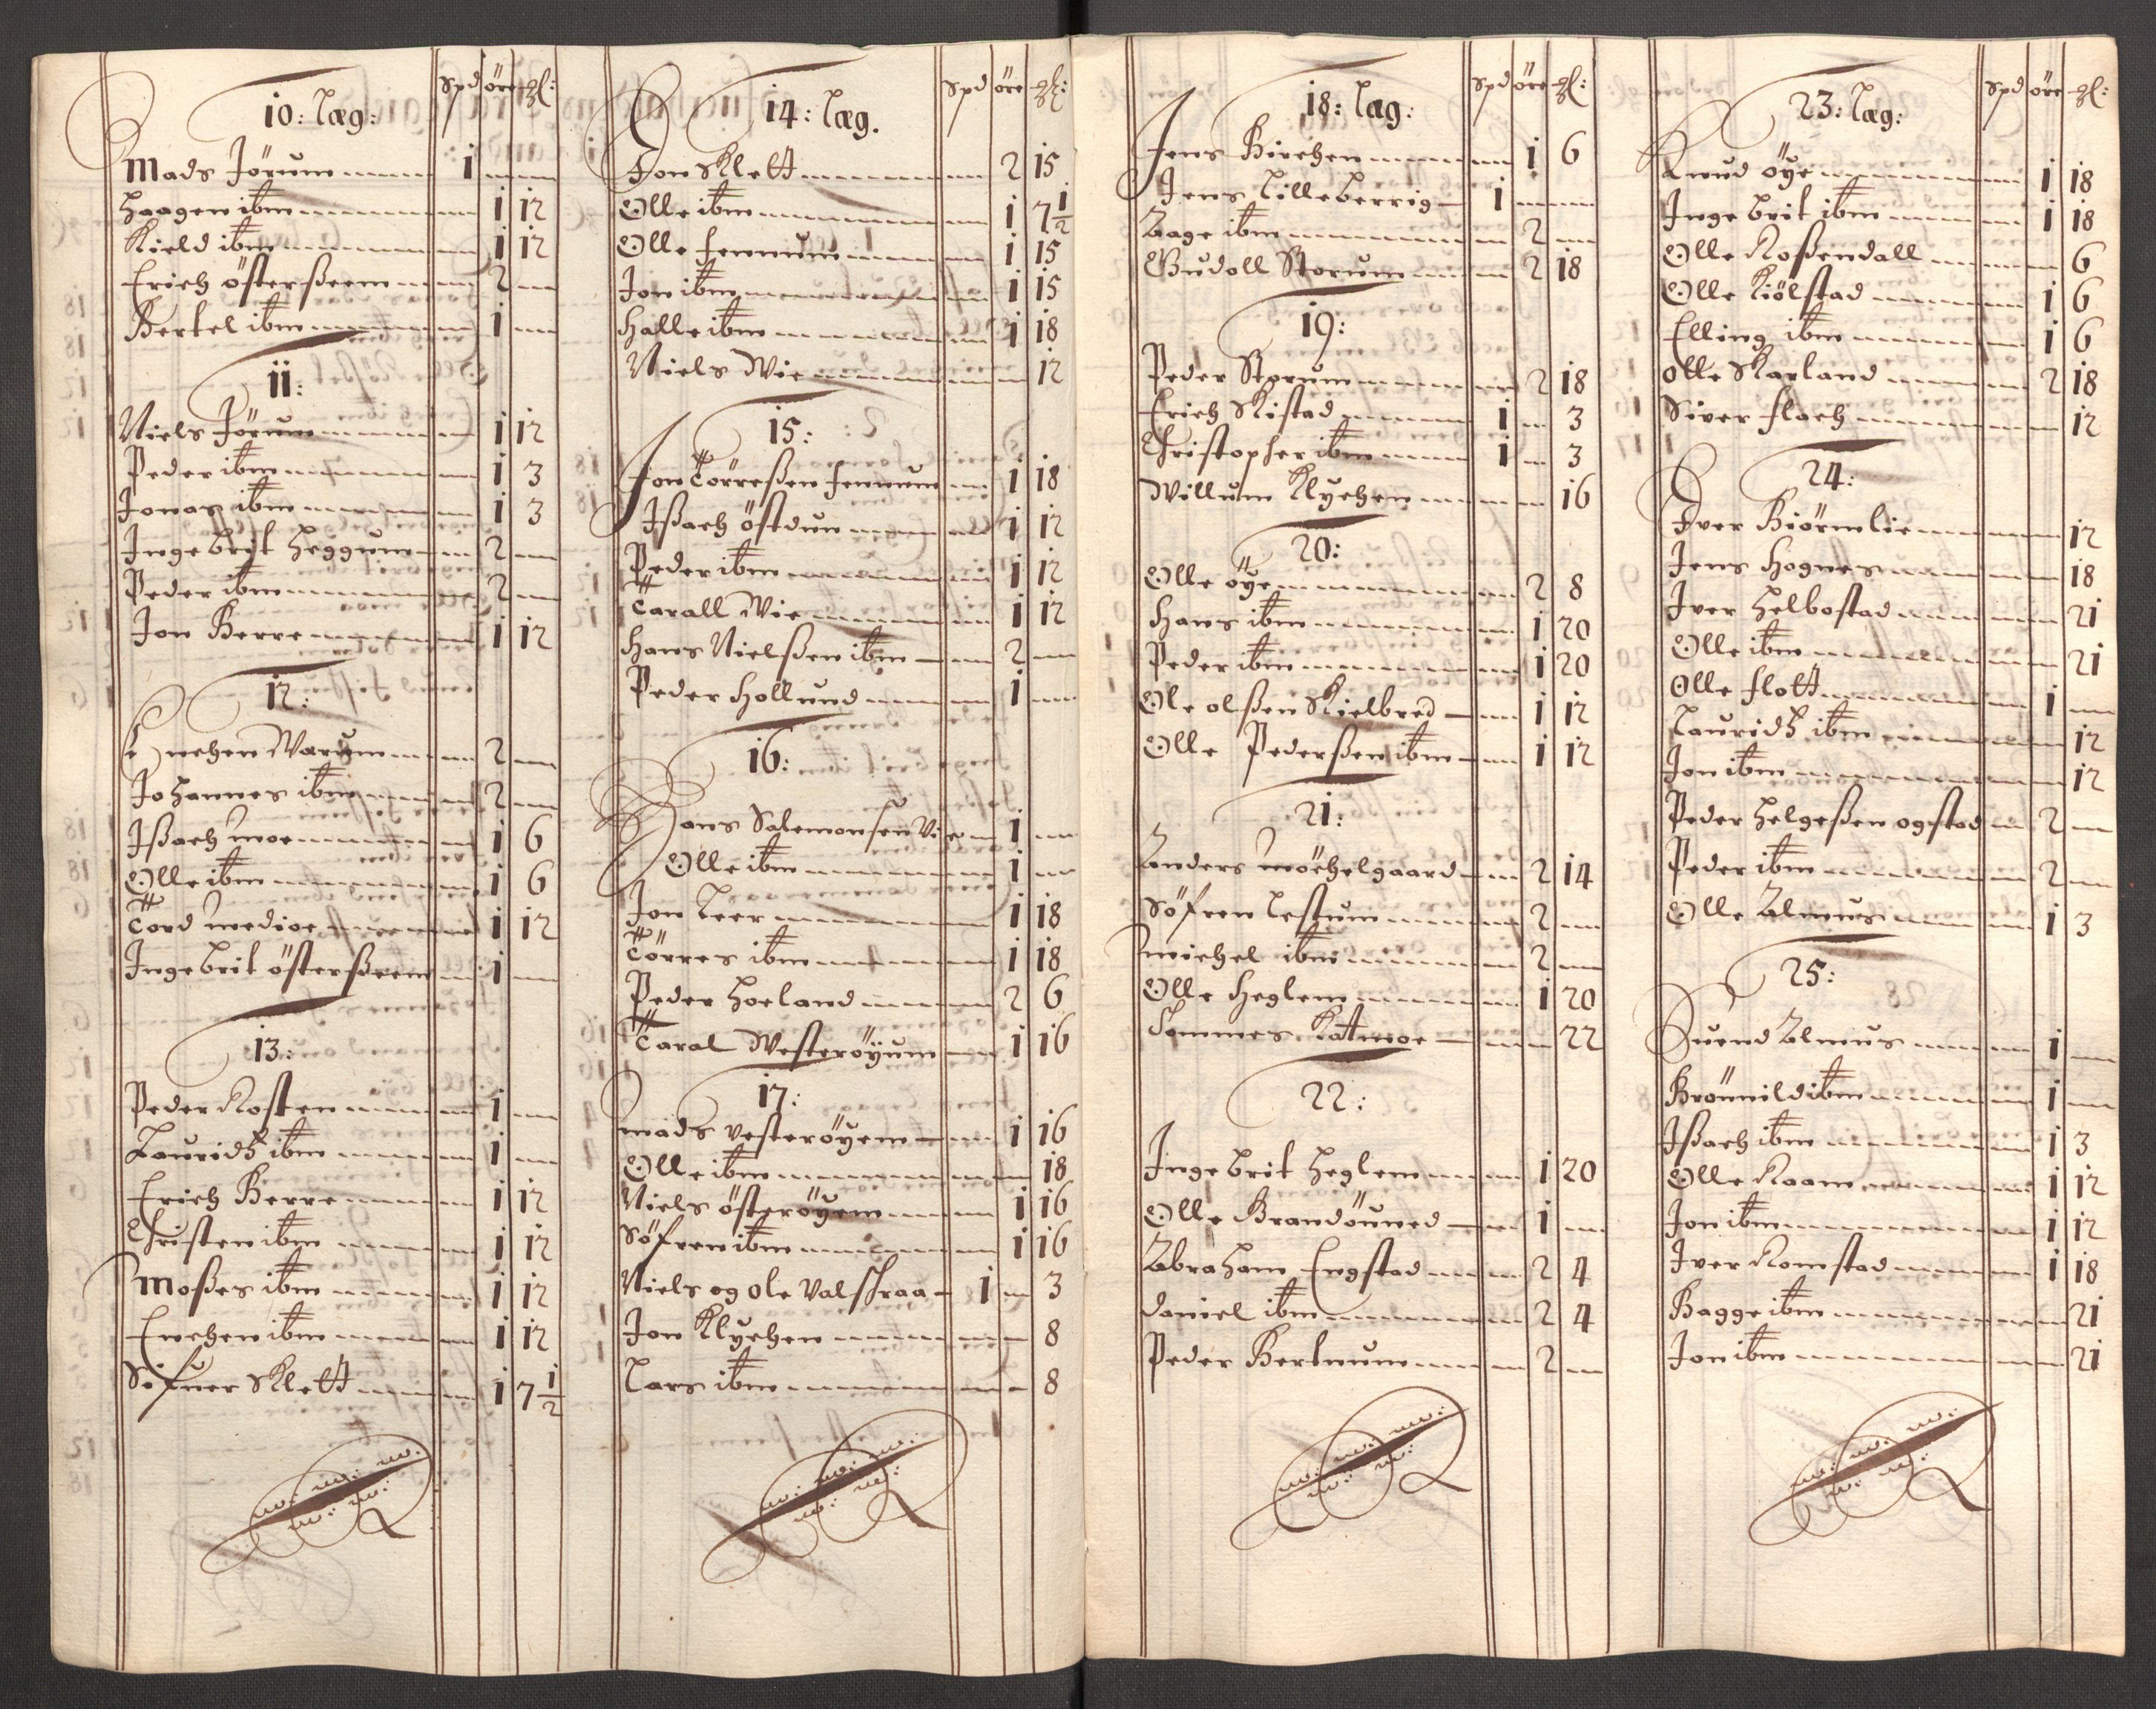 Spd öre gl:
10: Læg:
Mads Jörum 1
Haagen ibm 1 12
Kield ibm 1 12
Erich österßeem 2
Bertel ibm 1
11:
Niels Jörum 1 12
Peder ibm 1 3
Jonas ibm 1 3
Ingebrit Heggum 2
Peder ibm 2
Jon Berre 1 12
12:
Enchen Warum 2
Johannes ibm 2
Ißach Moe 1 6
Olle ibm 1 6
Tord Medioe 1 12
Ingebrit österßeem 1
13:
Peder Rosten 1
Lauridtz ibm 1
Erich Berre 1 12
Christen ibm 1 12
Moßes ibm 1 12
Enchen ibm 1 12
Söfner Klett 1 7 1/2
Spd öre gl:
14: Læg.
Jon Klett 2 15
Olle ibm 1 7 1/2
Olle Fennum 1 15
Jon ibm 1 15
Halle ibm 1 18
Niels Wie 12
15:
Jon Törreßen Fennum 1 18
Ißach östdun 1 12
Peder ibm 1 12
Tarall Wie 1 12
Hans Nielßen ibm 2
Peder Hollund 1
16:
Hans Salemonsen Vie 1
Olle ibm 1
Jon Leer 1 18
Törres ibm 1 18
Peder Hoeland 2 6
Taral Westeröyum 1 16
17:
Mads Vesteröyem 1 16
Olle ibm 18
Niels österöyem 1 16
Söfren ibm 1 16
Niels og Ole Valsfraa 1 3
Jon Klychen 8
Lars ibm 8
Spd öre gl:
18: Læg:
Jens Birchen 1 6
Jens Lilleberrig 1
Aage ibm 2
Gudoll Storum 2 18
19:
Peder Storum 2 18
Erich Skistad 1 3
Christopher ibm 1 3
Willum Klychen 16
20:
Olle öye 2 8
Hans ibm 1 20
Peder ibm 1 20
Ole olßen Kielbred 1 12
Olle Pederßen ibm 1 12
21:
Anders Möchelgaard 2 14
Söfren Lestum 2
Michel ibm 2
Olle Heglem 1 20
Tommes Katmoe 22
22:
Ingebrit Heglem 1 20
Olle Brandöuned 1
Abraham Engstad 2 4
Daniel ibm 2 4
Peder Bertnum 2
Spd öre gl:
23: Læg:
Knud öye 1 18
Ingebrit ibm 1 18
Olle Roßendall 6
Olle Kiölstad 1 6
Elling ibm 1 6
Olle Karland 2 18
Siver Flach 12
24:
Iver Kiörmlie 12
Jens Hognes 18
Iver Helbostad 21
Olle ibm 21
Olle Flott 1
Lauridtz ibm 12
Jon ibm 12
Peder Helgeßen ogstad 2
Peder ibm 2
Olle Almus 1 3
25:
Suend Almus 1
Brönnild ibm 1
Ißach ibm 1 3
Olle Raam 1 12
Jon ibm 1 12
Iver Romstad 1 18
Bagge ibm 21
Jon ibm 21